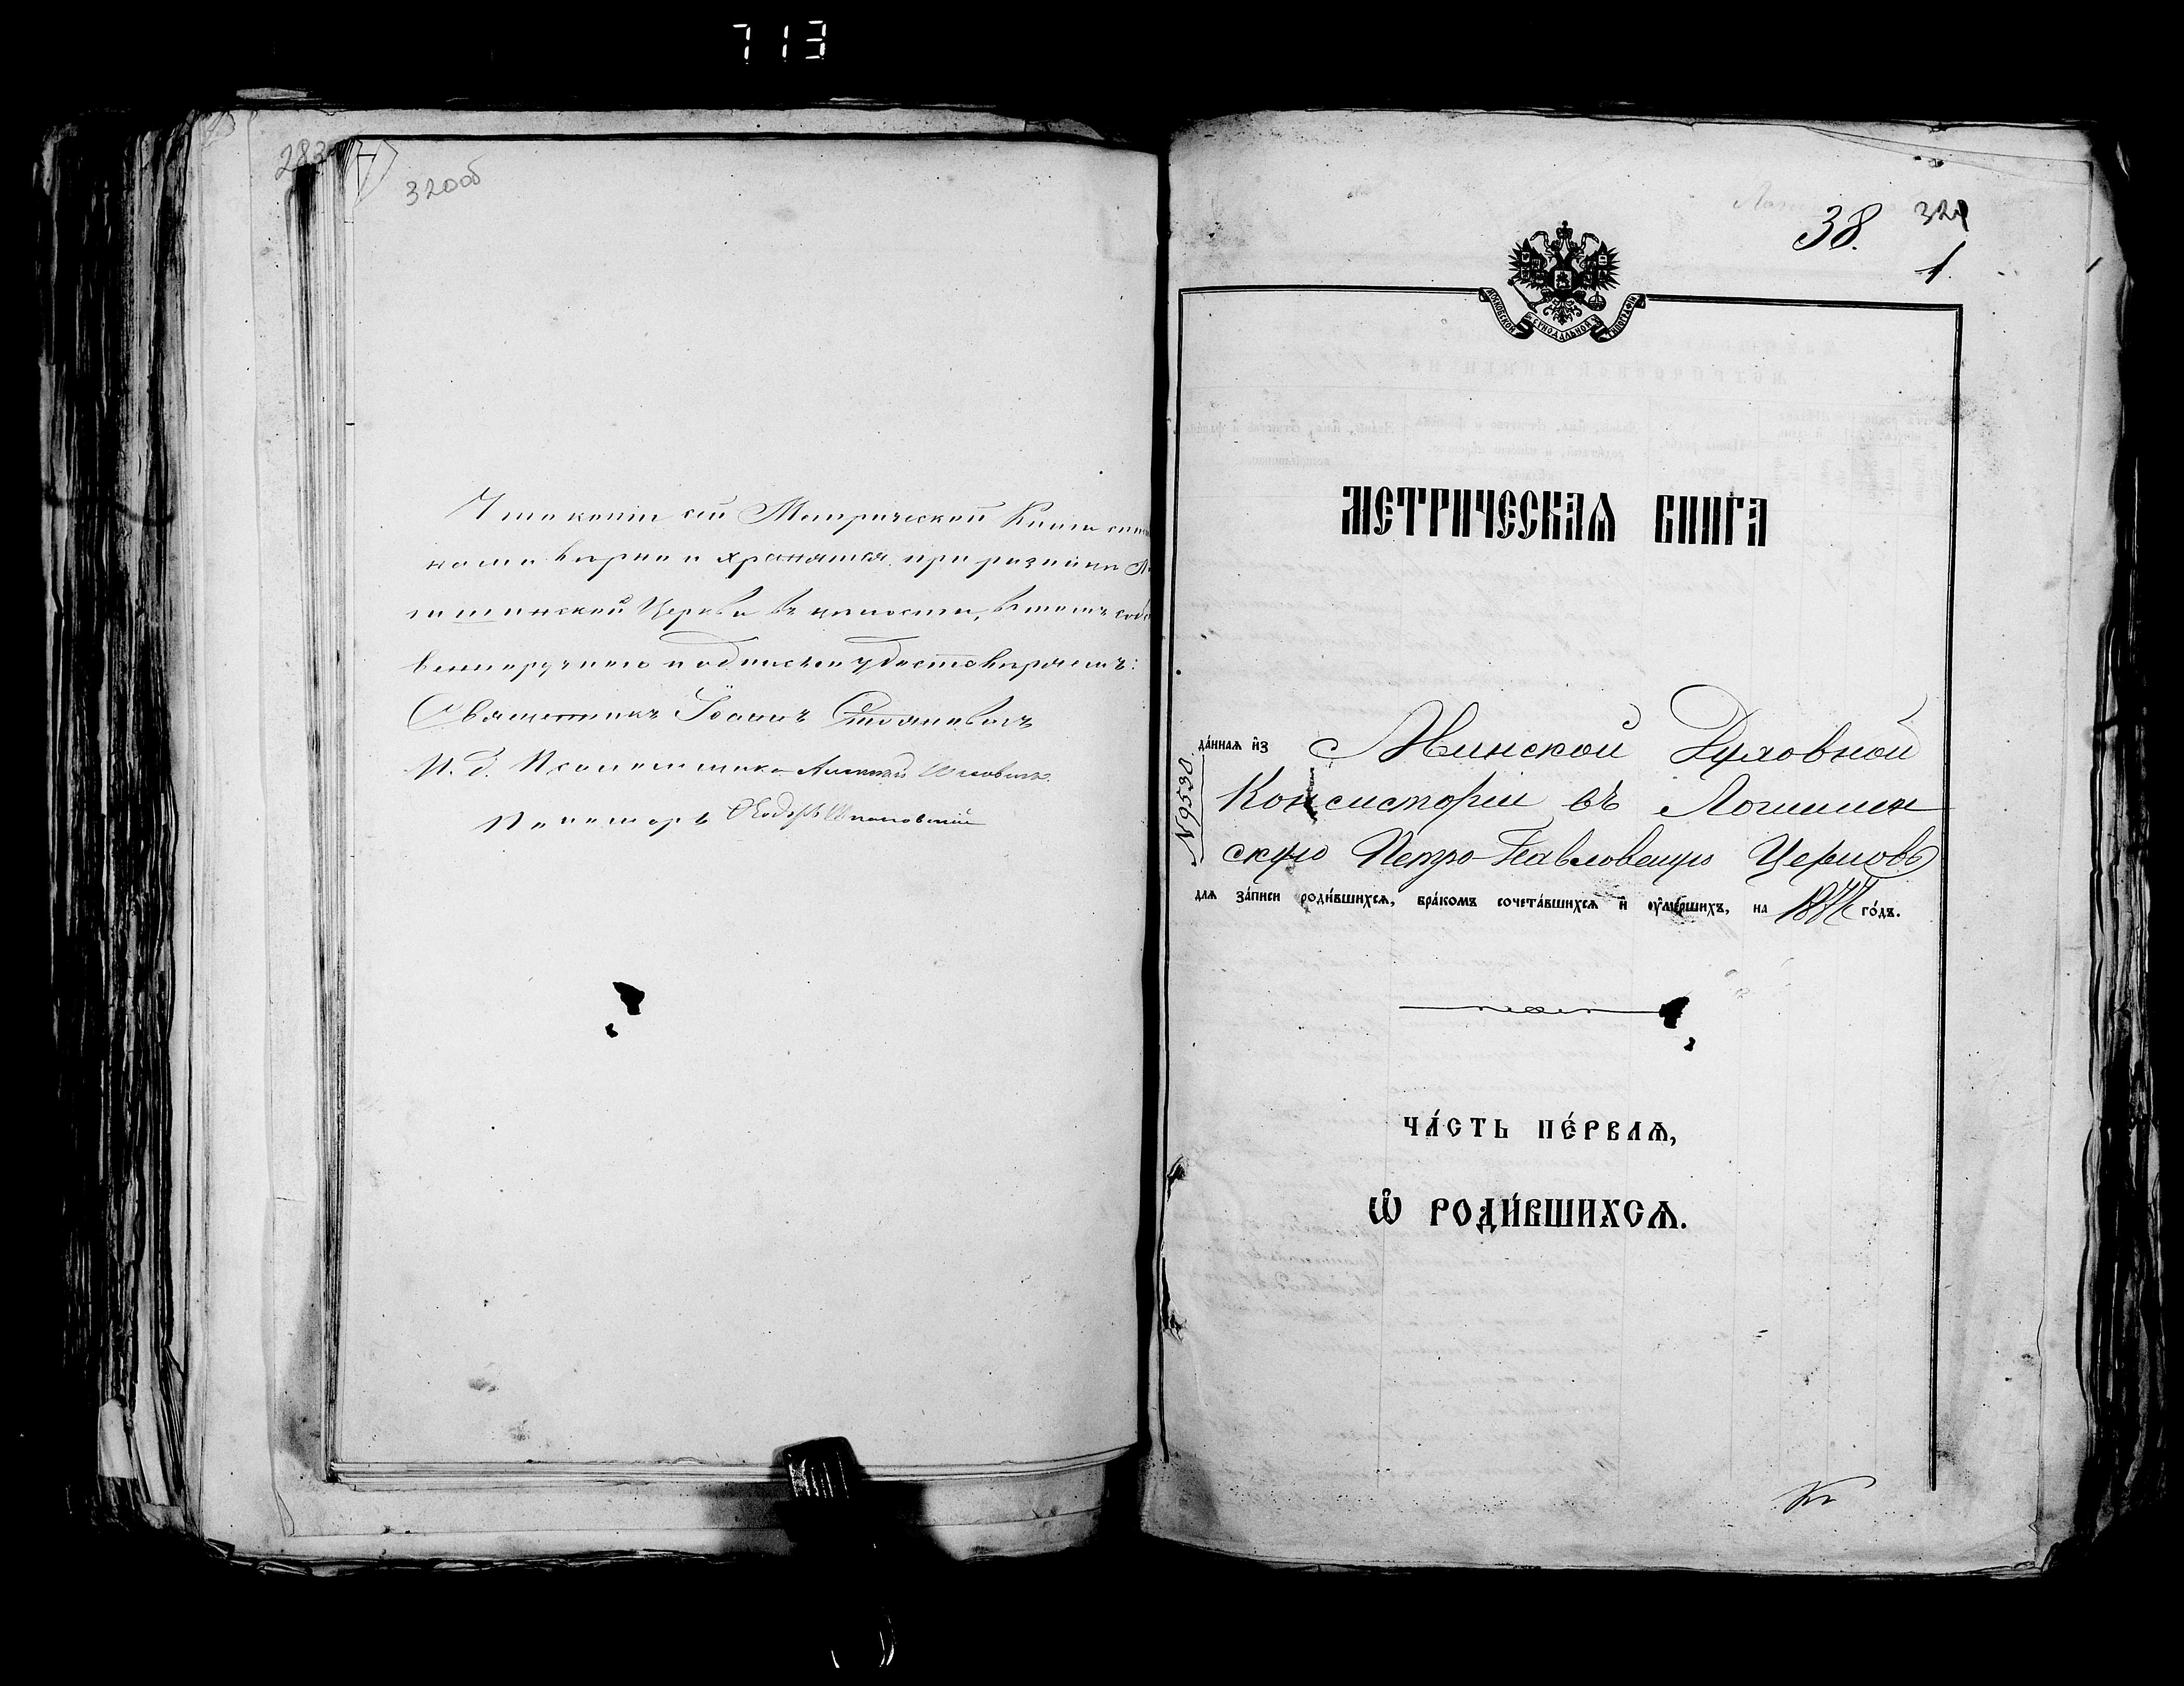 713
283
320об
Что копіи сей Метрической Книги
нами вѣрна и хранятся при ризницѣ
гишинской Церкви въ цѣлости, въ томъ
венноручною подписью удостовѣряемъ:
Священникъ Іоаннъ
И. д. Псаломщика
Пономарь Ѳеодоръ
38. 321
1.
МОСКОВСКОЙ СѴНОДАЛЬНОЙ ТИПОГРАФІИ
МЕТРИЧЕСКАѦ КНИГА
да́ннаѧ и҆з Минской Духовной
Консисторіи въ Логишин
скую Петро-Павловскую Церковь
№ 9530
длѧ за́писи роди́вшихсѧ, бра́комъ сочета́вшихсѧ и҆ ᲂу҆ме́ршихъ, на 1877 го́дъ.
ЧА́СТЬ ПЕ́РВАѦ,
Ѡ҆ РОДИ́ВШИХСѦ.